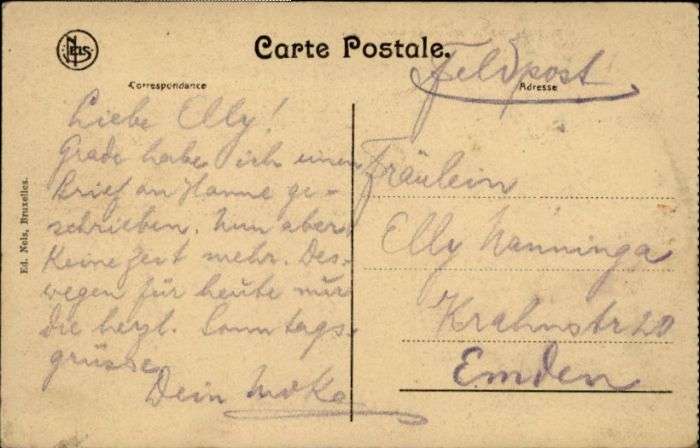 NELS
Carte Postale.
Feldpost
Correspondance
Adresse
Liebe Elly!
Grade habe ich einen
Brief an Hanne ge-
schrieben. Nun aber
keine Zeit mehr. Des-
wegen für heute nur
die herzl. Sonntags-
grüsse
Dein
Fräulein
Elly Nanninga
Krahnstr 20
Emden
Ed. Nels, Bruxelles.